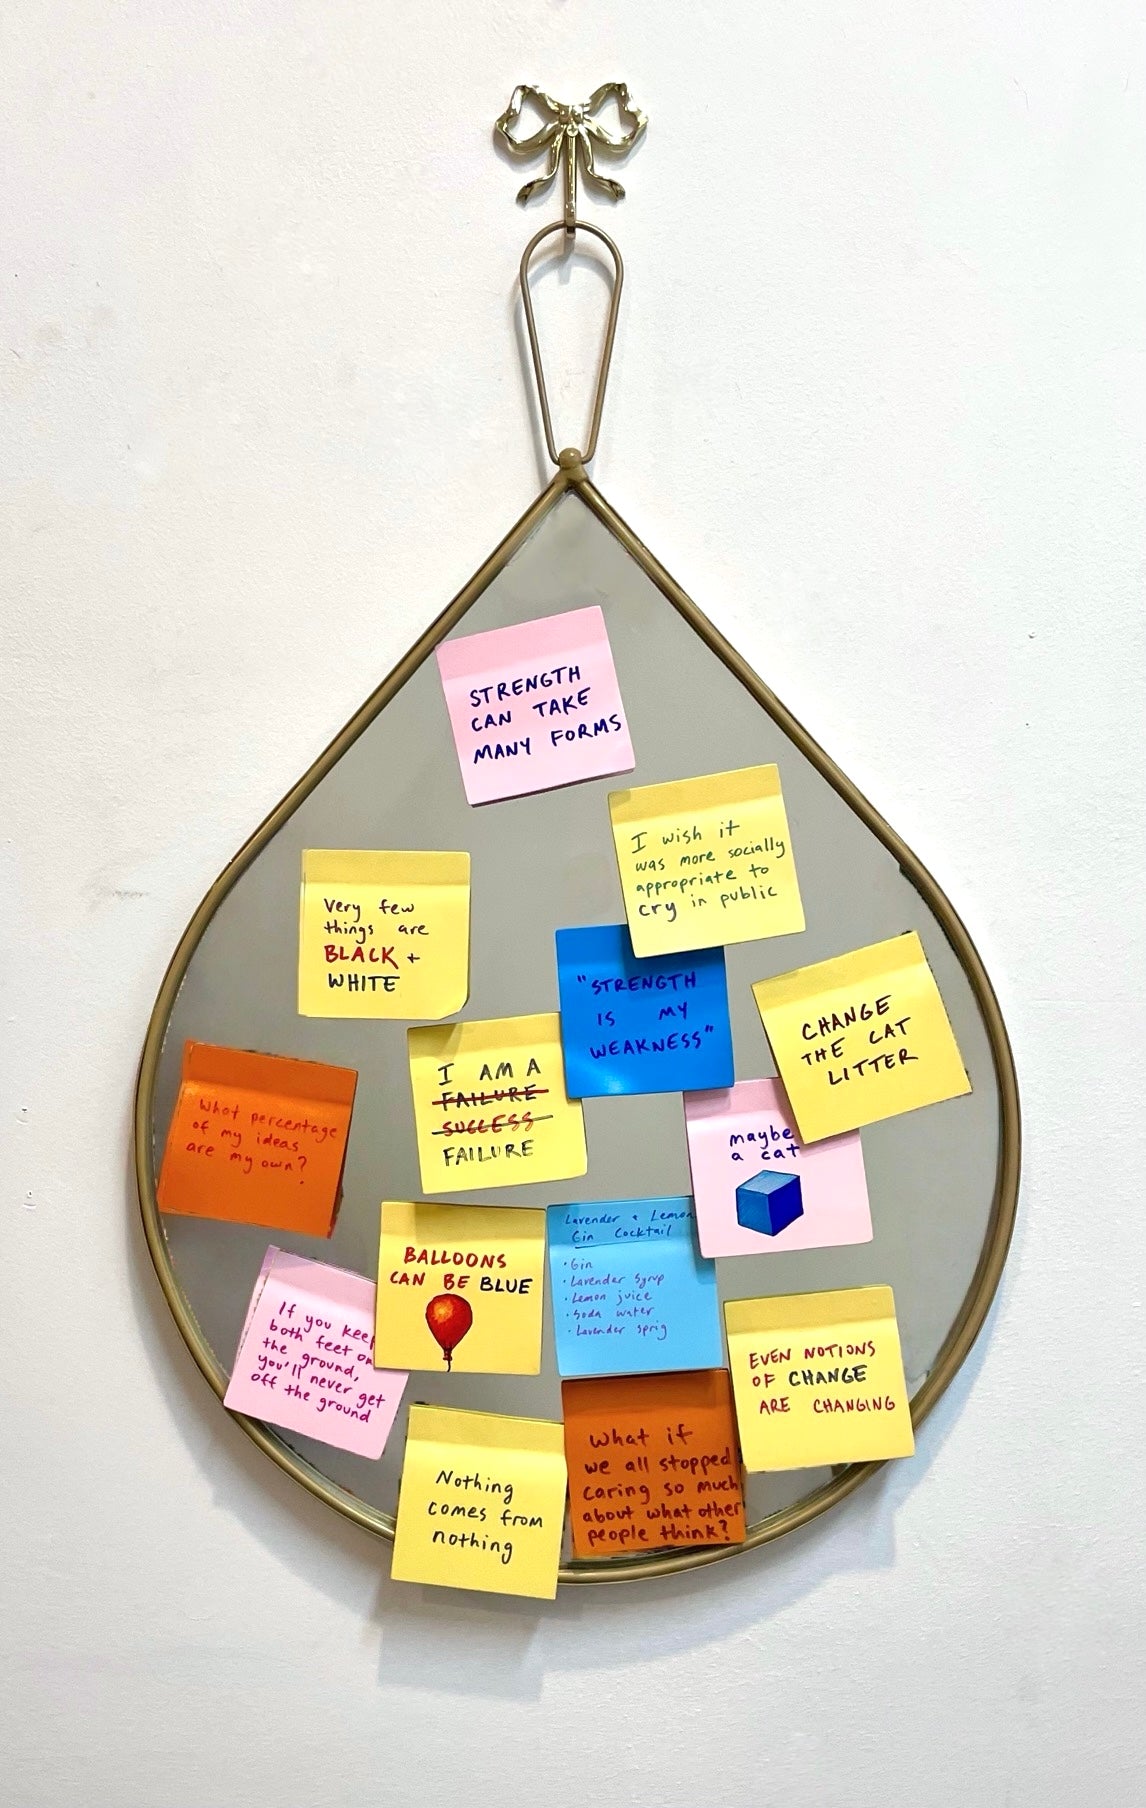 STRENGTH
CAN TAKE
MANY FORMS
I wish it
was more socially
appropriate to
cry in public
Very few
things are
BLACK +
WHITE
"STRENGTH
IS MY
WEAKNESS"
CHANGE
THE CAT
LITTER
I AM A
FAILURE
SUCCESS
FAILURE
What percentage
of my ideas
are my own?
maybe
a cat
BALLOONS
CAN BE BLUE
Lavender + Lemon
Gin Cocktail
• Gin
• Lavender Syrup
• Lemon juice
• Soda water
• Lavender sprig
If you keep
both feet on
the ground,
you'll never get
off the ground
EVEN NOTIONS
OF CHANGE
ARE CHANGING
Nothing
comes from
nothing
What if
we all stopped
caring so much
about what other
people think?